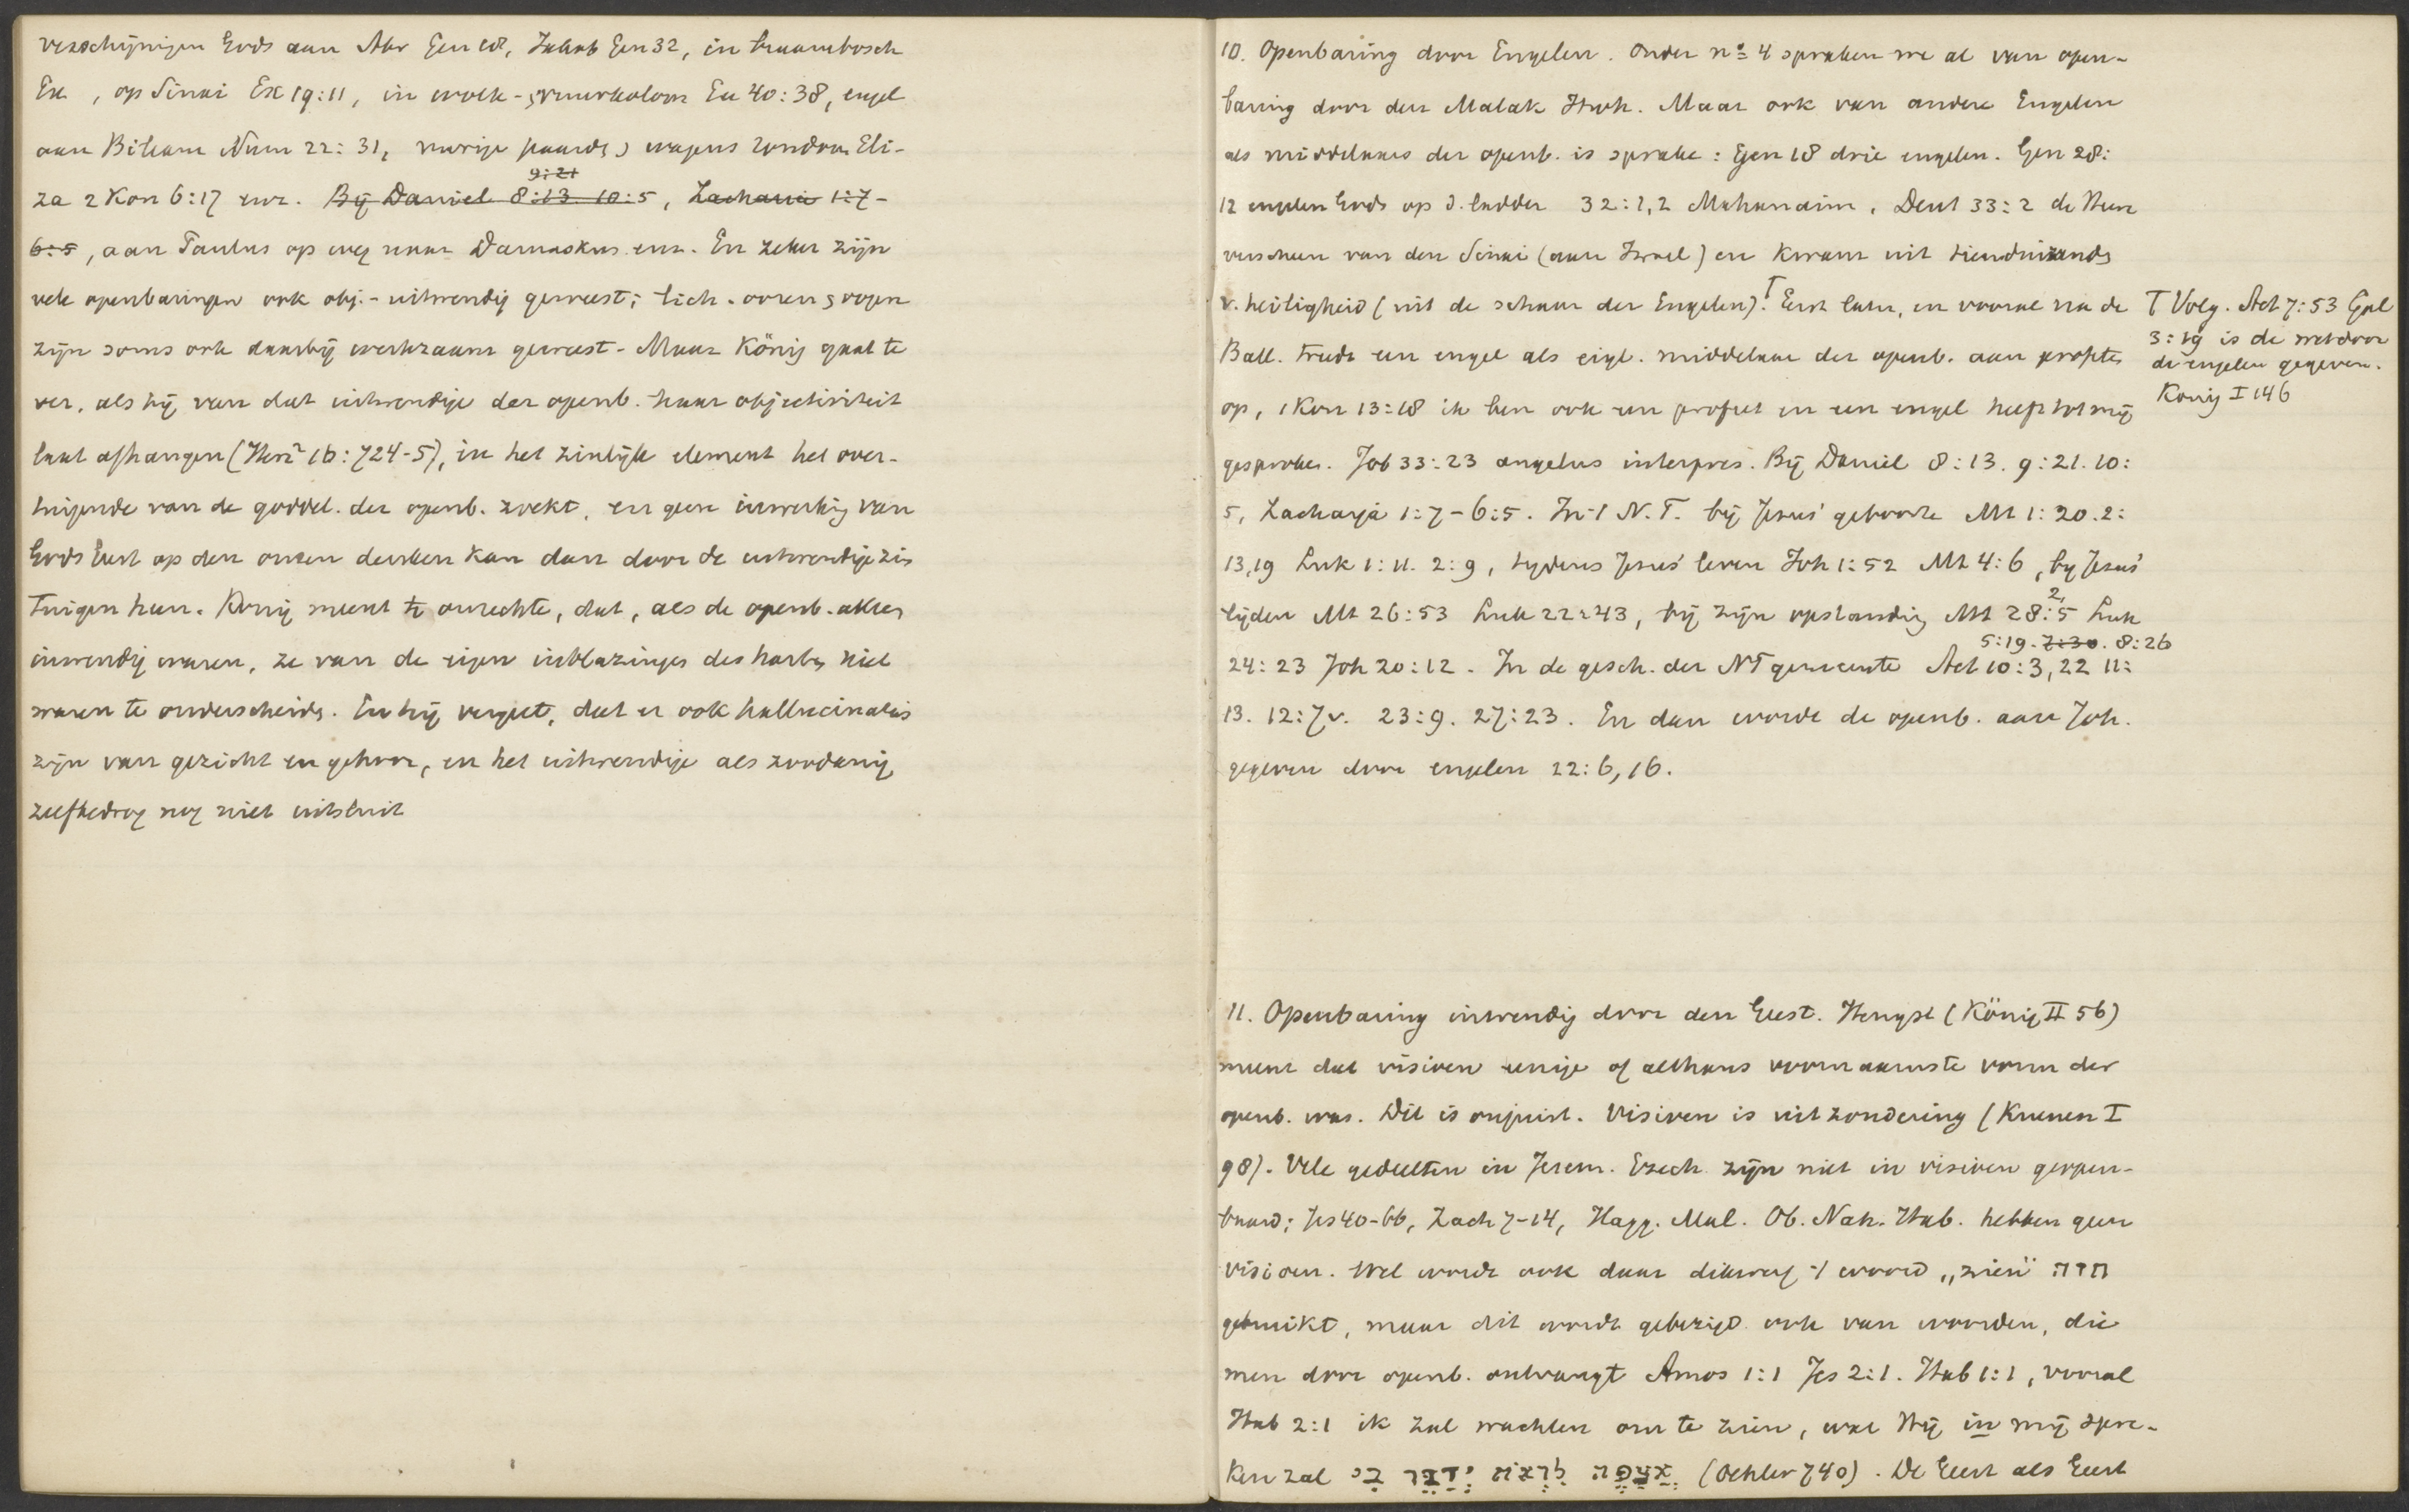 verschijningen Gods aan Abr Gen 18, Jakob Gen 32, in braambosch
Ex , op Sinai Ex 19:11, in wolk- , vuurkolom Ex 40:38, engel
aan Bileam Num 22:31, vurige paarden , wagens rondom Eli-
9:21
za 2 Kon 6:17 enz. Bij Daniel 8:13 10:5, Zacharia 1:7-
6:5, aan Paulus op weg naar Damaskus enz. En zeker zijn
vele openbaringen ook obj.-uitwendig geweest; lich. ooren , oogen
zijn soms ook daarbij werkzaam geweest - Maar König gaat te
ver, als hij van dat uitwendige der openb. haar objectiviteit
laat afhangen (Herz² 16:724-5), in het zinlijk element het over-
tuigende van de goddel. der openb. zoekt, en geen inwerking van
Gods Geest op den onzen denken kan dan door de uitwendige zin-
tuigen heen. König meent te onrechte, dat, als de openb. akten
inwendig waren, ze van de eigen inblazingen des harten niet
waren te onderscheiden. En hij vergeet, dat er ook hallucinaties
zijn van gezicht en gehoor, en het uitwendige als zoodanig
zelfbedrog nog niet uitsluit
10. Openbaring door Engelen. Onder nº 4 spraken we al van open-
baring door den Malak Jhvh. Maar ook van andere Engelen
als middelaars der openb. is sprake: Gen 18 drie engelen. Gen 28:
12 engelen Gods op d. ladder 32:1,2 Mahanaim, Deut 33:2 de Heer
verscheen van den Sinai (aan Israel) en kwam uit tienduizenden
v. heiligheid (uit de schaar der Engelen).⊤ Eerst later, en vooral na de
Ball. treedt een engel als eigl. middelaar der openb. aan profeten
op, 1 Kon 13:18 ik ben ook een profeet en een engel heeft tot mij
gesproken. Job 33:23 angelus interpres. Bij Daniel 8:13. 9:21. 10:
5, Zacharja 1:7-6:5. In 't N.T. bij Jezus' geboorte Mt 1:20. 2:
13,19 Luk 1:11. 2:9, tijdens Jezus' leven Joh 1:52 Mt 4:6, bij Jezus'
lijden Mt 26:53 Luk 22:43, bij zijn opstanding Mt 28:2,5 Luk
5:19. 7:30. 8:26
24:23 Joh 20:12. In de gesch. der NT gemeente Act 10:3,22 11:
13. 12:7v. 23:9. 27:23. En dan wordt de openb. aan Joh.
gegeven door engelen 22:6,16.
⊤ Volg. Act 7:53 Gal
3:19 is de wet door
de engelen gegeven.
König I 146
11. Openbaring inwendig door den Geest. Hengst (König II 56)
meent dat visioen eenige of althans voornaamste vorm der
openb. was. Dit is onjuist. Visioen is uitzondering (Kuenen I
98). Vele gedeelten in Jerem. Ezech. zijn niet in visioen geopen-
baard; Jes 40-66, Zach 7-14, Hagg. Mal. Ob. Nah. Hab. hebben geen
visioen. Wel wordt ook daar dikwerf 't woord „zien" חזה
gebruikt, maar dit wordt gebezigd ook van woorden, die
men door openb. ontvangt Amos 1:1 Jes 2:1. Hab 1:1, vooral
Hab 2:1 ik zal wachten om te zien, wat Hij in mij spre-
ken zal אצפה לראות ידבר בי (Oehler 740). De Geest als Geest